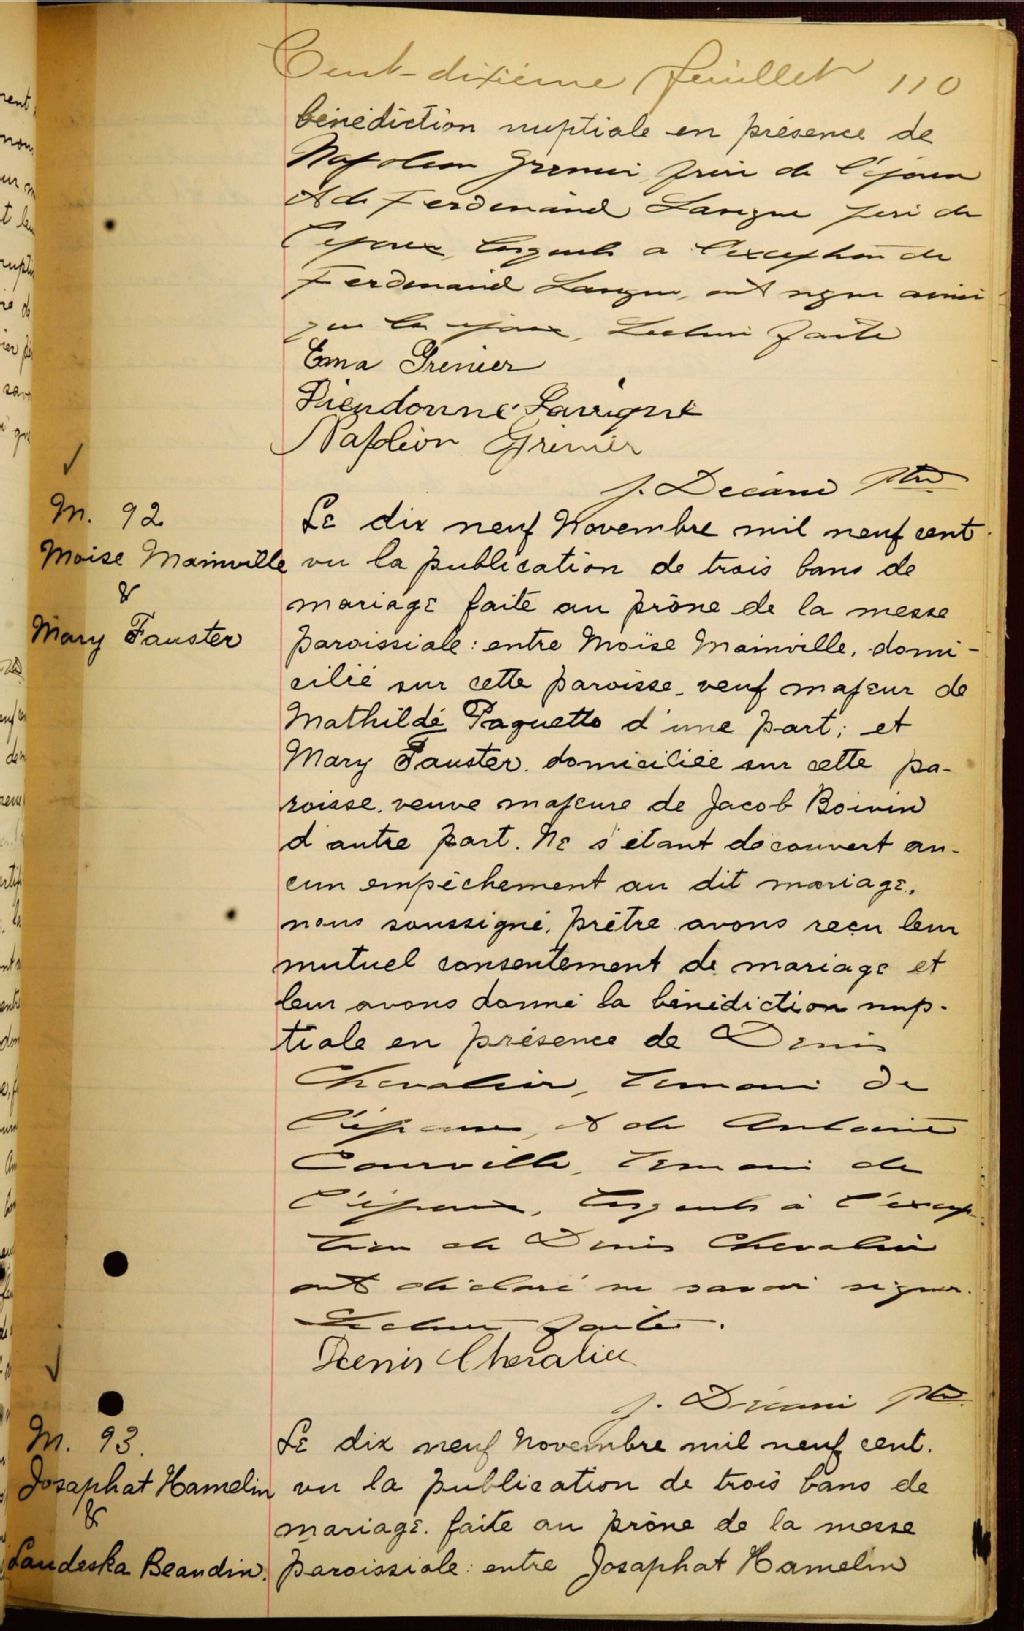 Cent-dixième feuillet 110
bénédiction nuptiale en présence de
Napoléon Grenier père de l'épouse
et de Ferdinand Lavigne père de
l'époux, lesquels a l'exception de
Ferdinand Lavigne, ont signé ainsi
que les époux, Lecture faite
Ema Grenier
Dieudonné Lavigne
Napoléon Grenier
J. Décarie Ptre
M. 92
Moise Mainville
&
Mary Fauster
Le dix neuf Novembre mil neuf cent
vu la publication de trois bans de
mariage faite au prône de la messe
paroissiale: entre Moïse Mainville, domi-
cilié sur cette paroisse, veuf majeur de
Mathilde Paquette d'une part; et
Mary Fauster domiciliée sur cette pa-
roisse, veuve majeure de Jacob Boivin
d'autre part. Ne s'étant découvert au-
cun empêchement au dit mariage,
nous soussigné, prêtre avons reçu leur
mutuel consentement de mariage et
leur avons donné la bénédiction nup-
tiale en présence de Denis
Chevalier, temoin de
l'épouse, et de Antoine
Courville, temoin de
l'époux, lesquels à l'excep-
tion de Denis Chevalier
ont déclaré ne savoir signer.
Lecture faite.
Denis Chevalier
J. Décarie Ptre
M. 93.
Josaphat Hamelin
&
Laudeska Beaudin.
Le dix neuf Novembre mil neuf cent.
vu la publication de trois bans de
mariage. faite au prône de la messe
paroissiale: entre Josaphat Hamelin